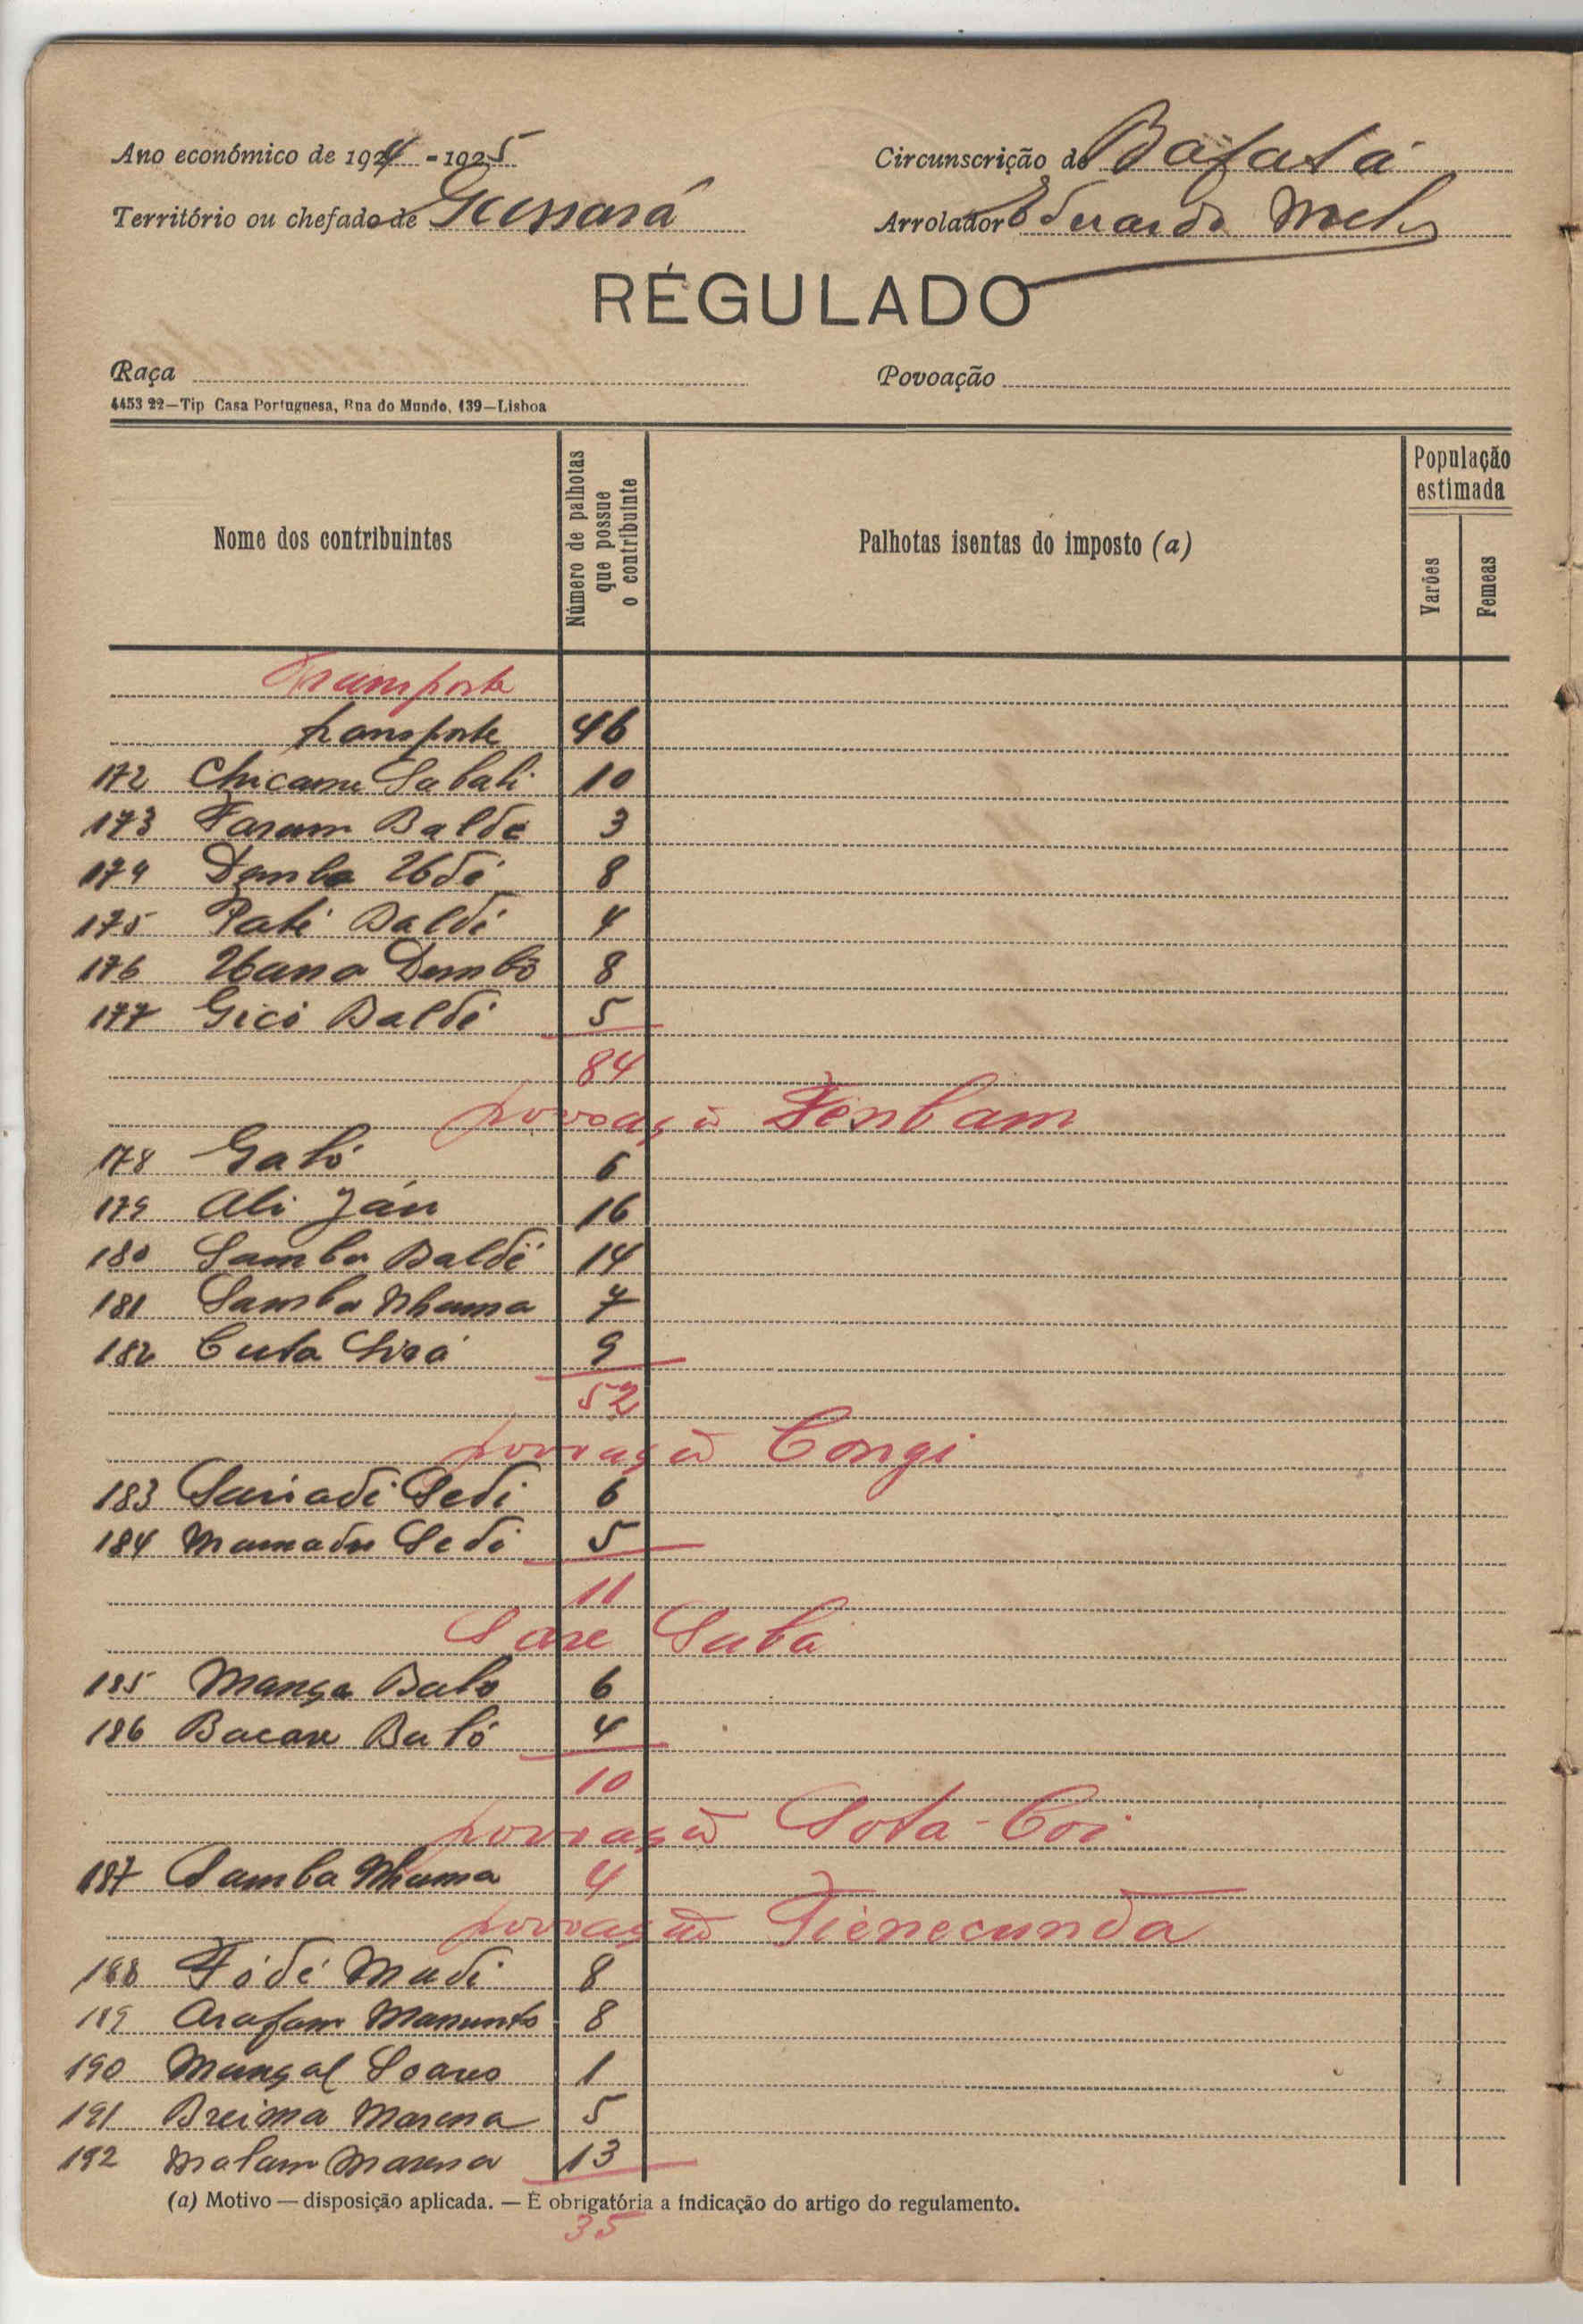 Ano económico de 1924 - 1925
Circunscrição de Bafatá
Território ou chefado de Gussará
Arrolador Eduardo
RÉGULADO
Raça
Povoação
4453 22—Tip Casa Portuguesa, Rua do Mundo, 139—Lisboa
Nome dos contribuintes
Número de palhotas que possue o contribuinte
Palhotas isentas do imposto (a)
População estimada
Varões
Femeas
Transporte
transporte 46
172 Sabali 10
173 Baldé 3
174 Demba 8
175 Pati Baldé 4
176 Dembó 8
177 Gicó Baldé 5
84
povoação Fenbam
178 Galó 6
179 Ali Ján 16
180 Samba Baldé 14
181 Samba Nhama 7
182 Cuta Sirá 9
52
povoação Congi
183 Sedi 6
184 Mamadu Sedi 5
11
Sare Suba
185 Manga Balo 6
186 Bacar Baló 4
10
povoação Sota-Coi
187 Samba Nhama 4
povoação Fienecunda
188 Fódé Madi 8
189 Arafam 8
190 Mangal Soares 1
191 Breima Marena 5
192 Malam Marena 13
(a) Motivo — disposição aplicada. — É obrigatória a indicação do artigo do regulamento.
35